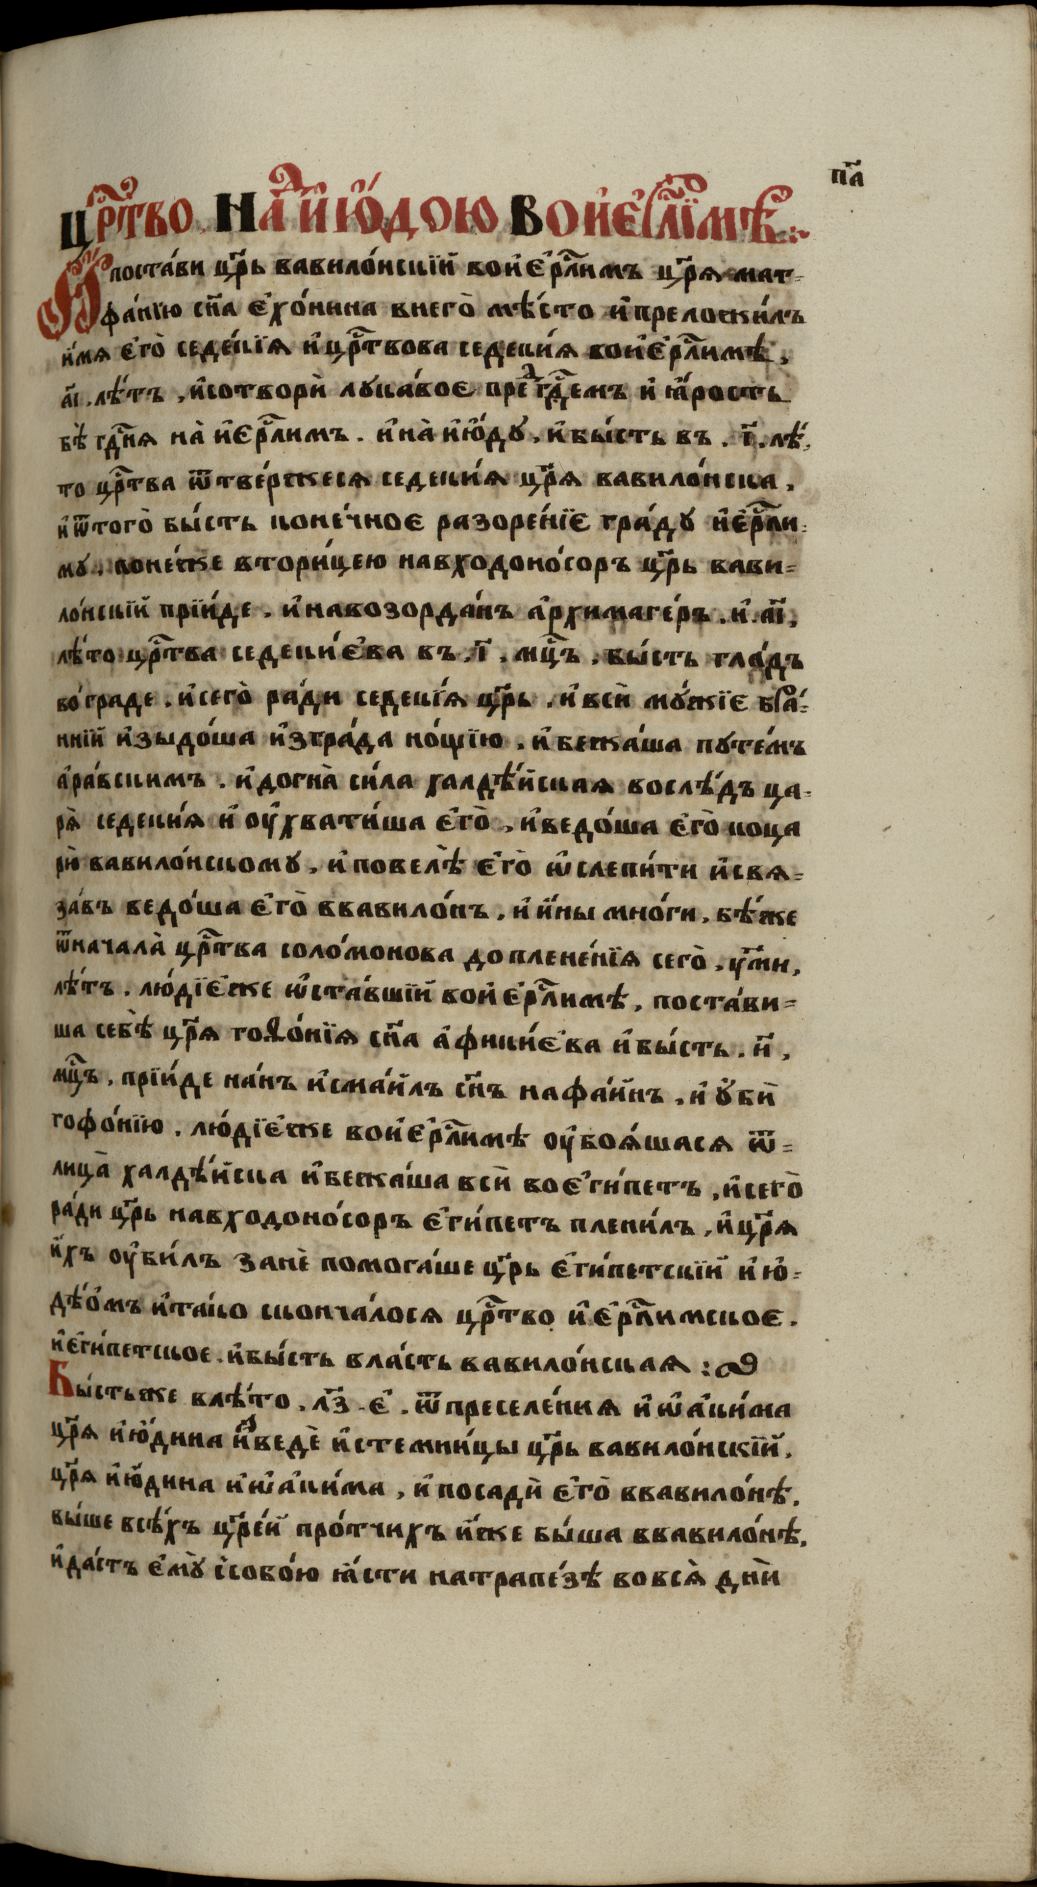 п҃а
Цр҃тво наⷣ и҆ю҆́дою во и҆е҆рⷭ҇ли́мѣ
И҆ поста́ви цр҃ь вавило́нскїй во и҆е҆рⷭ҇лимъ цр҃я мат-
фа́нїю сн҃а е҆хо́нина в него̀ мѣ́сто и҆ преложи́лъ
и҆́мя е҆го̀ седе́кїя и҆ цр҃твова седеки́я во и҆е҆рⷭ҇лимѣ,
а҃і. лѣ́тъ, и҆ сотвори̏ лука́вое преⷣ гдⷭ҇емъ и҆ ꙗ҆́рость
бѣ̀ гдⷭ҇ня на̀ и҆е҆рⷭ҇лимъ. и҆ на̀ и҆ю҆́ду, и҆ бы́сть въ. і҃. лѣ́-
то цр҃тва ѿтве́ржеся седеки́я цр҃я вавило́нска,
и҆ ѿ того̀ бы́сть коне́чное разоре́нїе гра́ду и҆е҆рⷭ҇ли-
му, поне́же втори́цею навходоно́соръ цр҃ь вави-
ло́нскїй прїи́де. и҆ навозорда́нъ а҆рхимаге́ръ. и҆. а҃і,
лѣ́то цр҃тва седеки́е҆ва въ. і҃. мцⷭ҇ъ, бы́сть гла́дъ
во̀ граде. и҆ сего̀ ра́ди седекі́я цр҃ь, и҆ вси̏ му́жїе бра́-
ннїй и҆зыдо́ша и҆з гра́да но́щїю, и҆ бежа́ша путе́мъ
а҆ра́вскимъ. и҆ догна̀ си́ла халдѣ́йская во слѣ́дъ ца-
ря̀ седеки́я и҆ оу҆хвати́ша е҆го̀, и҆ ведо́ша е҆го̀ ко ца
рю̀ вавило́нскому, и҆ повелѣ̀ е҆го̀ ѡ҆слепи́ти и҆ свя-
за́въ ведо́ша е҆го̀ в вавило́нъ, и҆ и҆́ны мно́ги, бѣ́же
ѿ начала̀ цр҃тва соло́монова до плене́нїя сего̀. ум҃и,
лѣ́тъ. лю́дїе҆же ѡ҆ста́вшїй во и҆е҆рⷭ҇лимѣ, поста́ви-
ша себѣ̀ цр҃я гоѳо́нїя сн҃а а҆фики́е҆ва и҆ бы́сть. и҃,
мцⷭ҇ъ, прїи́де на́нъ и҆сма́илъ сн҃ъ нафа́инъ, и҆ у҆би̏
гофо́нїю. лю́дїе҆же во и҆е҆рⷭ҇лимѣ оу҆боя́шася ѿ-
лица̀ халдѣ́йска и҆ бежа́ша вси̏ во е҆ги́петъ, и҆ сего̀
ра́ди цр҃ь навходоно́соръ е҆ги́петъ плени́лъ, и҆ цр҃я
и҆́хъ оу҆би́лъ зане̏ помога́ше цр҃ь е҆ги́петскїй и҆ю҆-
дѣ́о҆мъ и҆ та́ко сконча́лося цр҃тво и҆е҆рⷭ҇лимское.
и҆ е҆ги́петское. и҆ бы́сть вла́сть вавило́нская :
Бы́стьже в лѣ́то. л҃з. е҃. ѿ преселе́ния и҆ѡ҆аки́ма
цр҃я и҆ю҆́дина и҆ⷥведѐ и҆с темни́цы цр҃ь вавило́нскїй,
цр҃я и҆ю҆́дина и҆ѡ҆аки́ма, и҆ посади̏ е҆го̀ в вавило́нѣ.
вы́ше всѣ́хъ цр҃е́й про́тчихъ и҆́же бы́ша в вавило́нѣ,
и҆ да́стъ е҆му̀ с собо́ю ꙗ҆́сти на трапе́зѣ во вся̀ дни̏